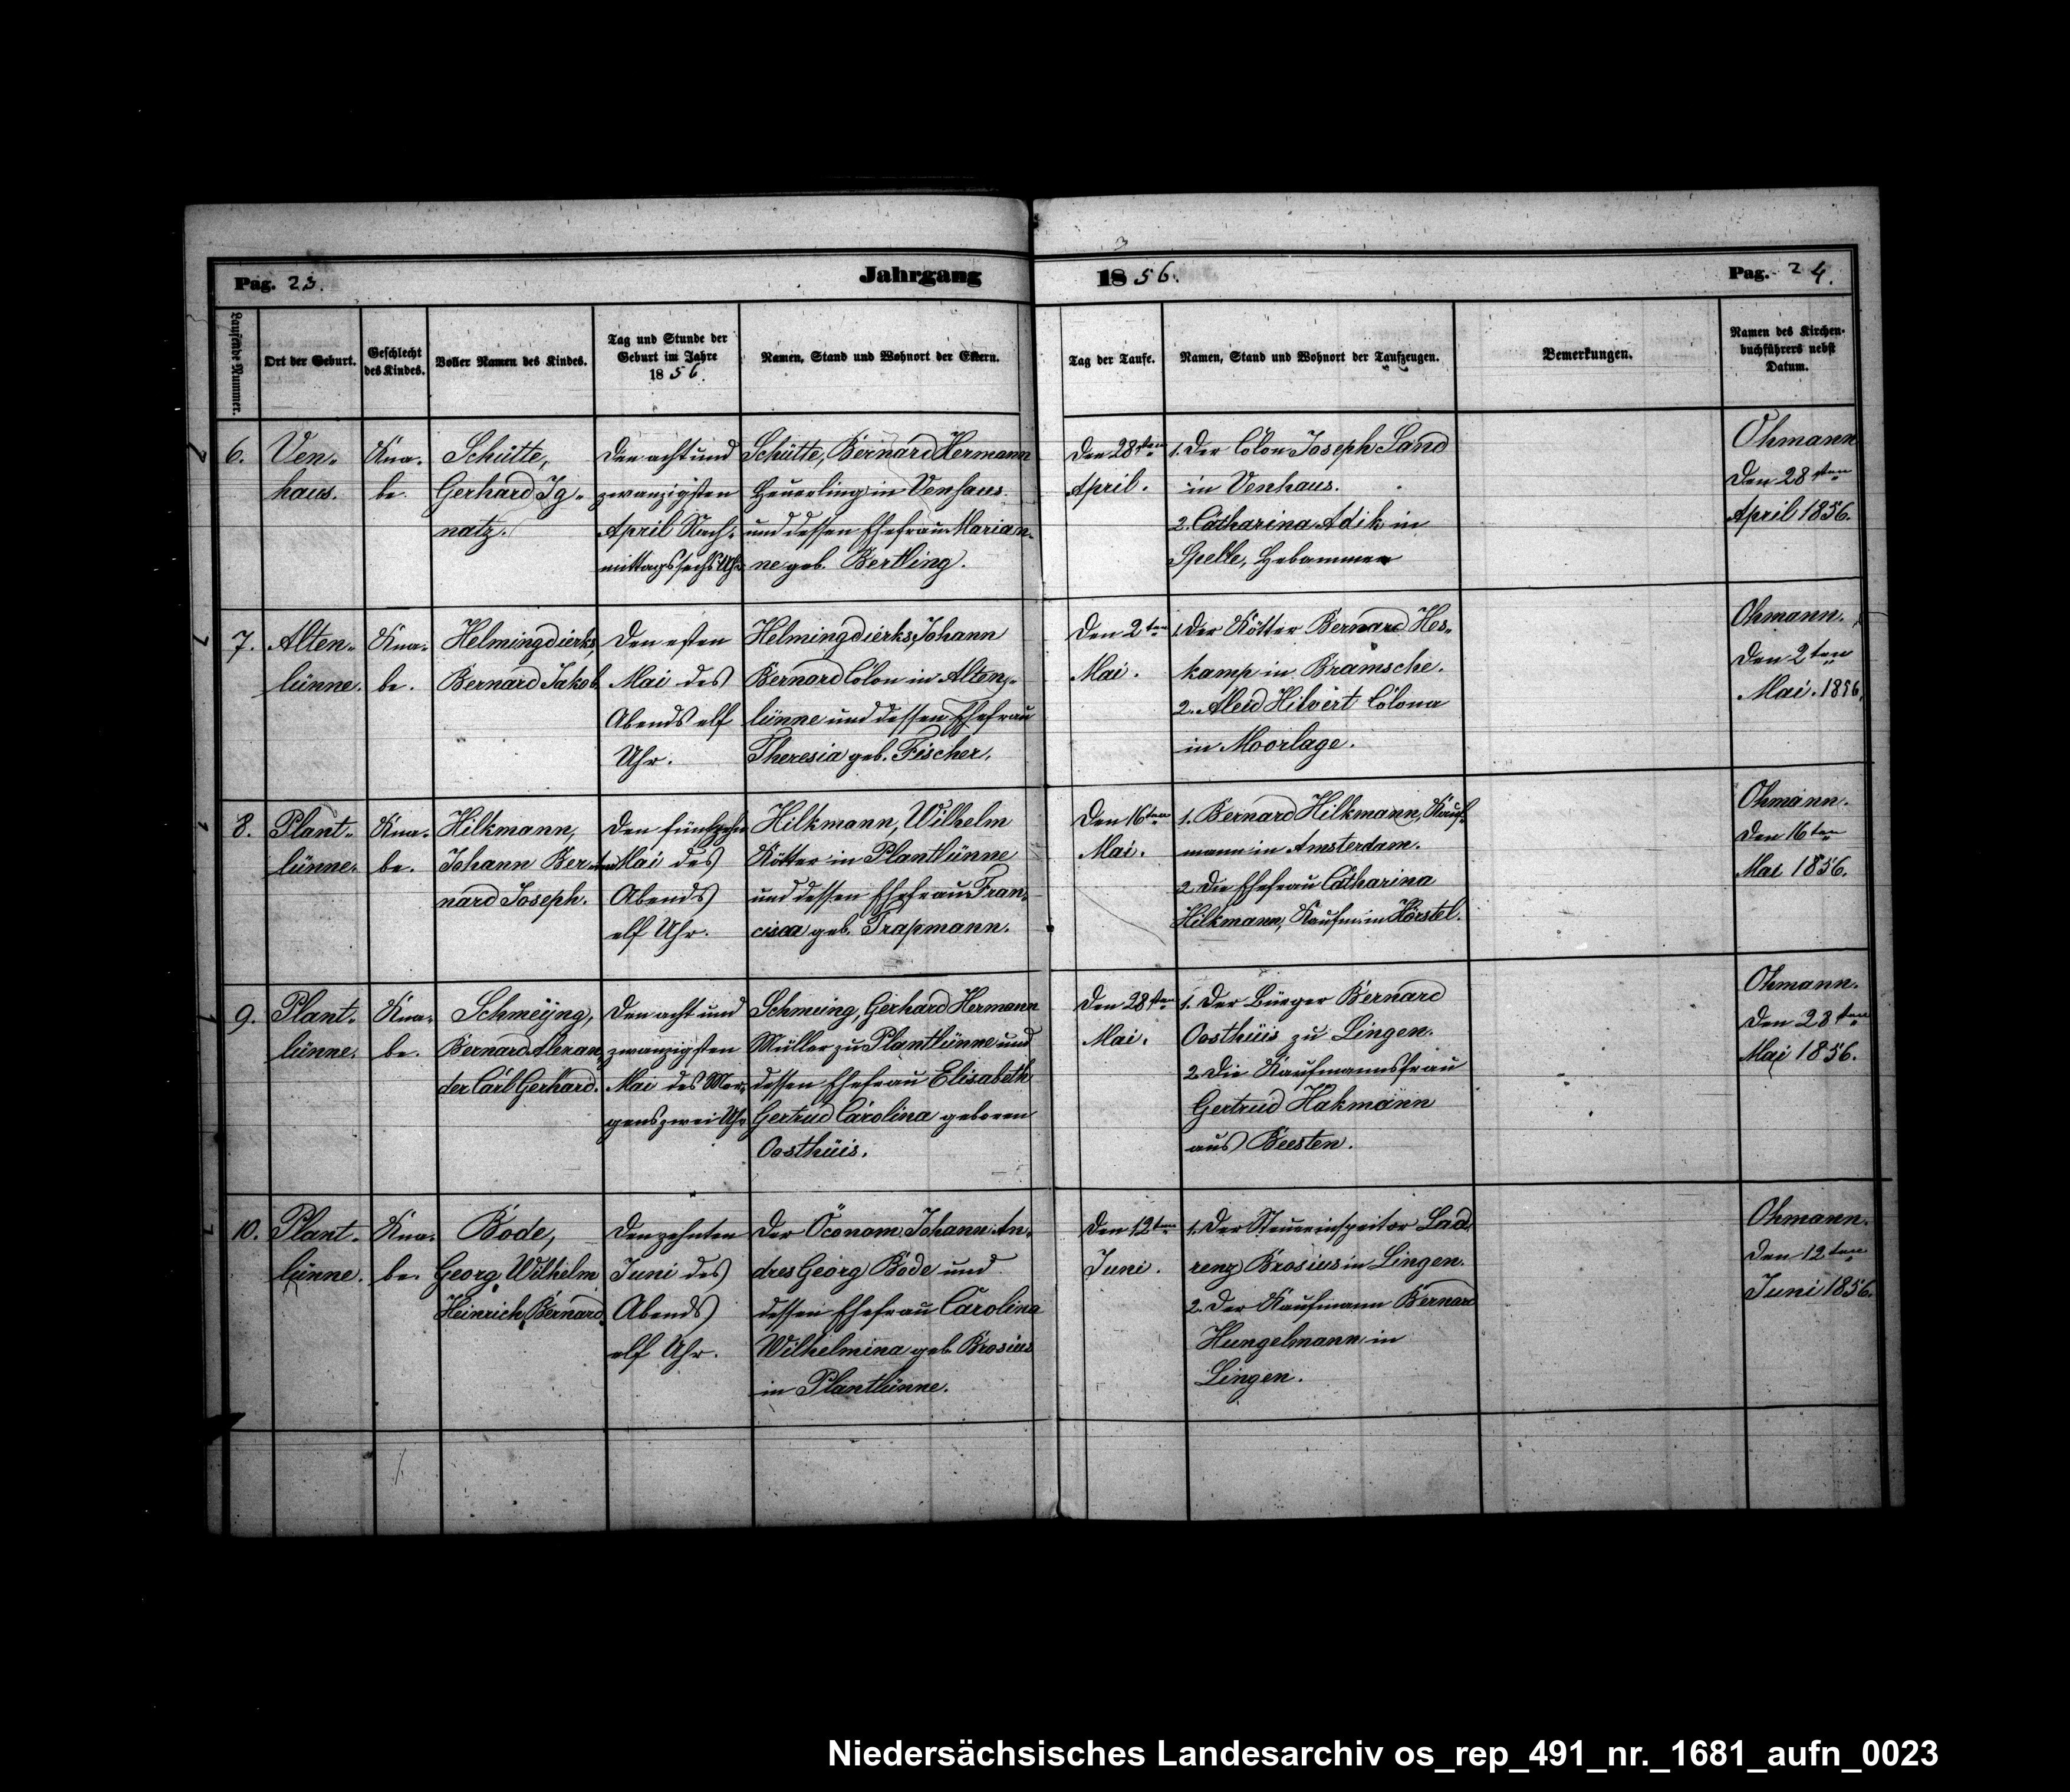 Pag. 23.
Jahrgang
1856.
Pag. 24.
Laufende Nummer.
Ort der Geburt.
Geschlecht
des Kindes.
Voller Namen des Kindes.
Tag und Stunde der
Geburt im Jahre
1856.
Namen, Stand und Wohnort der Eltern.
Tag der Taufe.
Namen, Stand und Wohnort der Taufzeugen.
Bemerkungen.
Namen des Kirchen-
buchführers nebst
Datum.
6.
Ven-
haus.
Kna-
be.
Schütte,
Gerhard Ig-
natz.
Den acht und
zwanzigsten
April Nach-
mittags sechs Uhr
Schütte, Bernard Hermann
Heuerling in Venhaus
und dessen Ehefrau Marian-
ne geb. Bertling.
Den 28sten
April.
1. Der Colon Joseph Sand
in Venhaus.
2. Catharina Adik in
Spelle, Hebamme
Ohmann
Den 28sten
April 1856.
7.
Alten-
lünne.
Kna-
be.
Helmingdierks,
Bernard Jakob
Den ersten
Mai des
Abends elf
Uhr.
Helmingdierks, Johann
Bernard Colon in Alten-
lünne und dessen Ehefrau
Theresia geb. Fischer.
Den 2ten
Mai.
1. Der Kötter Bernard Hes-
kamp in Bramsche.
2. Aleid Hilvert Colona
in Moorlage.
Ohmann.
Den 2ten
Mai. 1856.
8.
Plant-
lünne.
Kna-
be.
Hilkmann,
Johann Ber-
nard Joseph.
Den fünfzehnten
Mai des
Abends
elf Uhr.
Hilkmann, Wilhelm
Kötter in Plantlünne
und dessen Ehefrau Fran-
cisca geb. Trapmann.
Den 16ten
Mai.
1. Bernard Hilkmann, Kauf-
mann in Amsterdam.
2. Die Ehefrau Catharina
Hilkmann, Kaufm. in Hörstel.
Ohmann.
Den 16ten
Mai 1856.
9.
Plant-
lünne.
Kna-
be.
Schmeijng,
Bernard Alexan-
der Carl Gerhard.
Den acht und
zwanzigsten
Mai des Mor-
gens zwei Uhr
Schmeing, Gerhard Hermann
Müller zu Plantlünne und
dessen Ehefrau Elisabeth
Gertrud Carolina geboren
Oosthüis.
Den 28sten
Mai.
1. Der Bürger Bernard
Oosthüis zu Lingen.
2. Die Kaufmannsfrau
Gertrud Hakmann
aus Beesten.
Ohmann.
Den 28sten
Mai 1856.
10.
Plant-
lünne.
Kna-
be.
Bode,
Georg Wilhelm
Heinrich Bernard.
Den zehnten
Juni des
Abends
elf Uhr.
Der Öconom Johann An-
dres Georg Bode und
dessen Ehefrau Carolina
Wilhelmina geb. Brosius
in Plantlünne.
Den 12ten
Juni.
1. Der Steuerinspector
Brosius in Lingen.
2. Der Kaufmann Bernard
Hungelmann in
Lingen.
Ohmann.
Den 12ten
Juni 1856.
Niedersächsisches Landesarchiv os_rep_491_nr._1681_aufn_0023